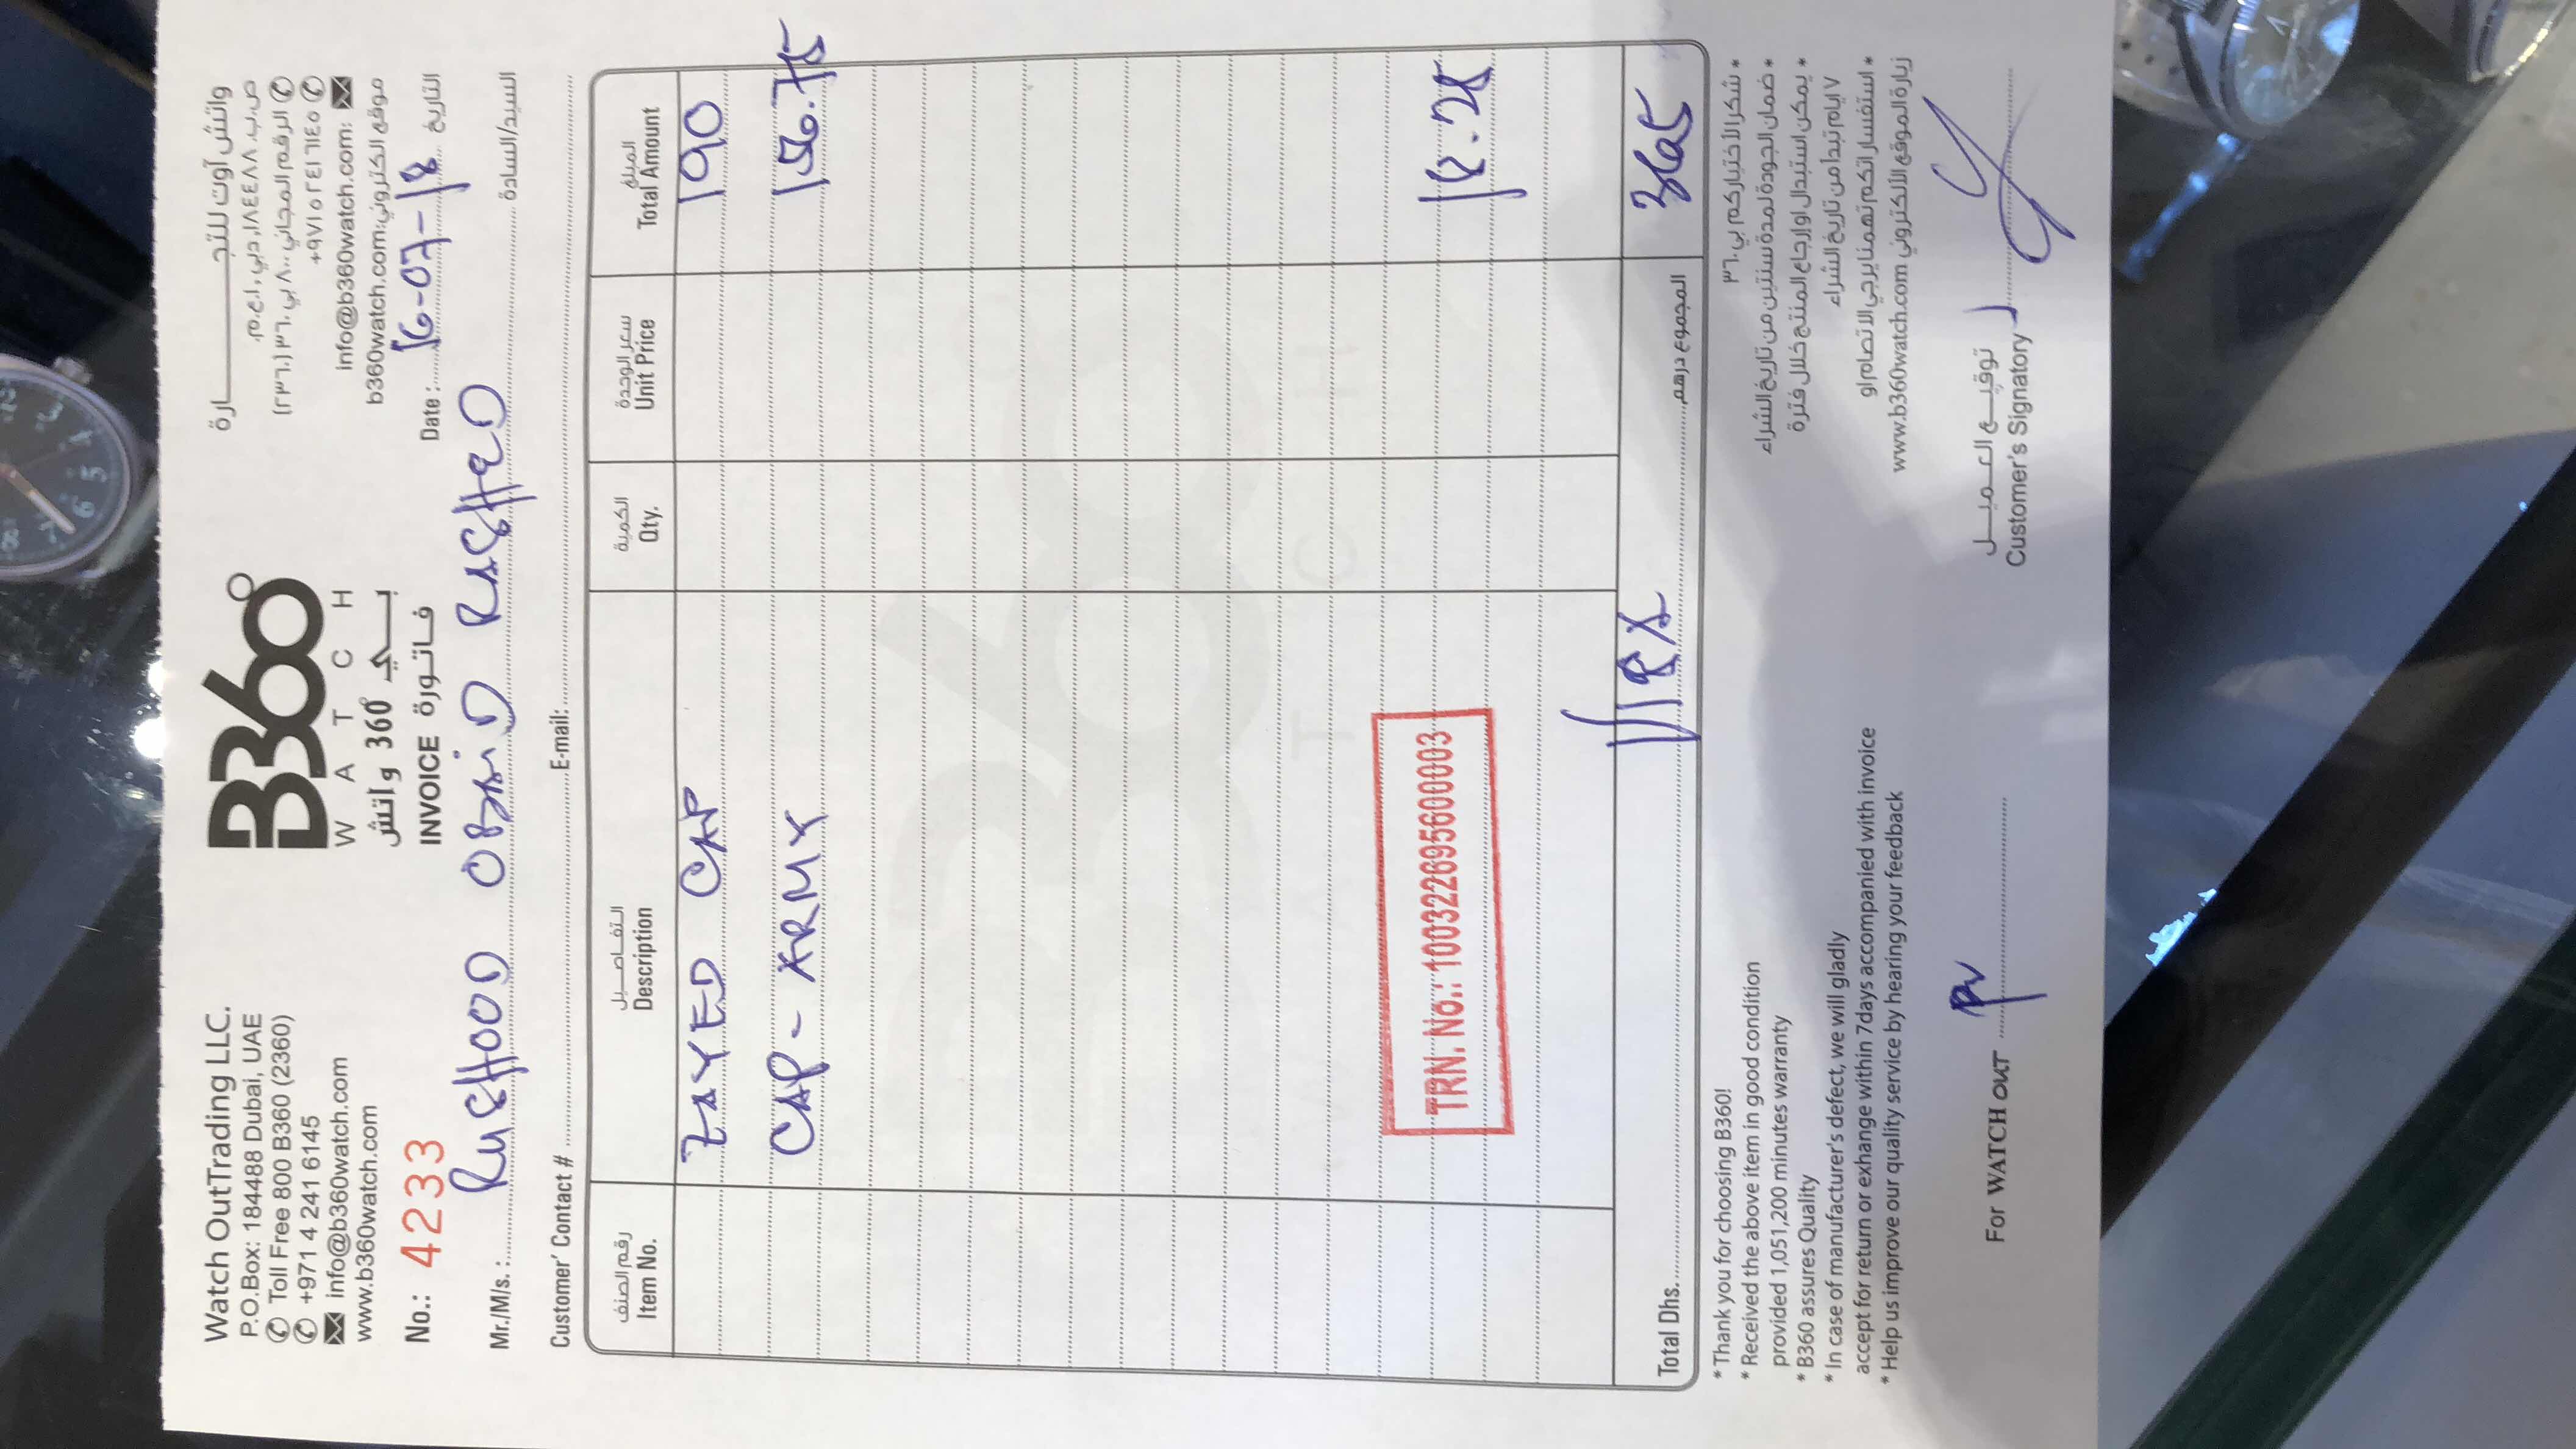 Watch OutTrading LLC.
P.O.Box: 184488 Dubai, UAE
Toll Free 800 B360 (2360)
+971 4 241 6145
info@b360watch.com
www.b360watch.com
No.: 4233
B360°
WATCH
بي 360° واتش
INVOICE فاتورة
واتش آوت للتجارة
ص.ب. ١٨٤٤٨٨, دبي, ا.ع.م.
الرقم المجاني ٨٠٠ بي ٣٦٠ (٢٣٦٠)
+٩٧١ ٥ ٢٤١ ٦١٤٥
info@b360watch.com:
موقع الكتروني:b360watch.com
Date : 16-07-18 التاريخ
Mr./M/s. : RUSHOOD OBAID RASHED السيد/السادة
Customer' Contact # E-mail:
رقم الصنف التفاصيل الكمية سعر الوحدة المبلغ
Item No. Description Qty. Unit Price Total Amount
ZAYED CAP 190
CAP - ARMY 156.75
TRN. No.: 100322695600003
18.25
Total Dhs. المجموع درهم 365
* Thank you for choosing B360!
* Received the above item in good condition
provided 1,051,200 minutes warranty
* B360 assures Quality
* In case of manufacturer's defect, we will gladly
accept for return or exhange within 7days accompanied with invoice
* Help us improve our quality service by hearing your feedback
* شكرا لأختياركم بي ٣٦٠
* ضمان الجودة لمدة سنتين من تاريخ الشراء
* يمكن استبدال او إرجاع المنتج خلال فترة
٧ ايام تبدأ من تاريخ الشراء
* استفساراتكم تهمنا يرجي الاتصام او
زيارة الموقع الألكتروني www.b360watch.com
For WATCH OUT
توقيع العميل
Customer's Signatory